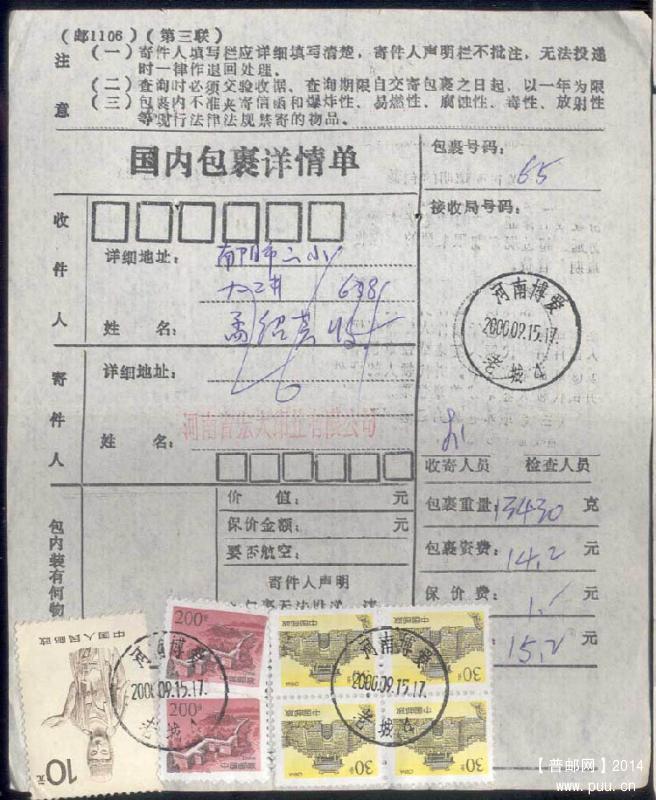 (邮1106)(第三联)
注意
(一)寄件人填写栏应详细填写清楚,寄件人声明栏不批注,无法投递
时一律作退回处理。
(二)查询时必须交验收据。查询期限自交寄包裹之日起,以一年为限
(三)包裹内不准夹寄信函和爆炸性、易燃性、腐蚀性、毒性、放射性
等现行法律法规禁寄的物品。
国内包裹详情单
包裹号码:
65
接收局号码:
收件人
详细地址:
南阳市
姓 名:
寄件人
详细地址:
河南省
有限公司
姓 名:
河南博爱
2000.09.15.17.
老城
收寄人员 检查人员
价 值: 元
保价金额: 元
要否航空:
寄件人声明
包裹重量: 13430 克
包裹资费: 14.2 元
保 价 费: 1. 元
15.2 元
包内装有何物
中国人民邮政
10元
200分
200分
中国邮政
中国邮政
30分
30分
30分
30分
中国邮政
中国邮政
中国邮政
中国邮政
河南博爱
2000.09.15.17.
老城
河南博爱
2000.09.15.17.
老城
【普邮网】2014
www.puu.cn